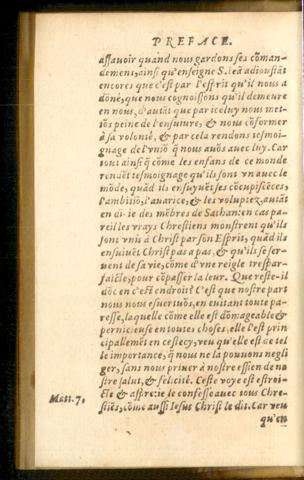 PREFACE.
assavoir quand nous gardons ses cōman-
demens, ainsi qu'enseigne S. Ieā adioustāt
encores que c'est par l'esprit qu'il nous a
dōné, que nous cognoissons qu'il demeure
en nous, d'autāt que par iceluy nous met-
tōs peine de l'ensuiure, & nous cōformer
à sa volonté, & par cela rendons tesmoi-
gnage de l'vniō q̄ nous auōs auec luy. Car
tout ainsi q̄ cōme les enfans de ce monde
rendēt tesmoignage qu'ils sont vn auec le
mōde, quād ils ensuyuēt ses cōcupiscēces,
l'ambitiō, l'auarice, & les voluptez, autāt
en di-ie des mēbres de Sathan: en cas pa-
reil les vrays Chrestiens monstrent qu'ils
sont vnis à Christ par son Esprit, quād ils
ensuiuēt Christ pas a pas, & qu'ils se ser-
uent de sa vie, cōme d'vne reigle trespar-
faicte, pour cōpasser la leur. Que reste-il
dōc en c'est endroit? C'est que nostre part
nous nous esuertuōs, en euitant toute pa-
resse, laquelle cōme elle est dōmageable &
pernicieuse en toutes choses, elle l'est prin
cipallemēt en cestecy, veu qu'elle est de tel
le importance, q̄ nous ne la pouuons negli
ger, sans nous priuer à nostre essien de no
stre salut, & felicité. Ceste voye est estroi-
Matt. 7.
cte & aspre: ie le confesse auec tous Chre-
stiēs, cōme aussi Iesus Christ le dit. Car veu
qu'en